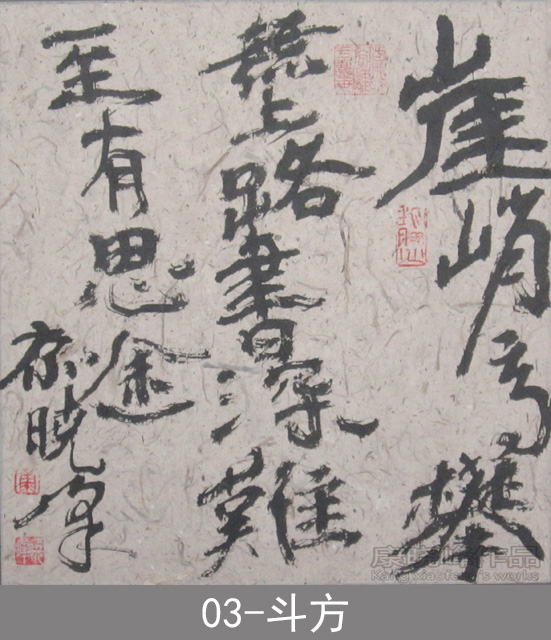 崖峭攀
無上路書深難
至有思途
康晓峰
康晓峰作品
Kang xiaofeng's works
03-斗方